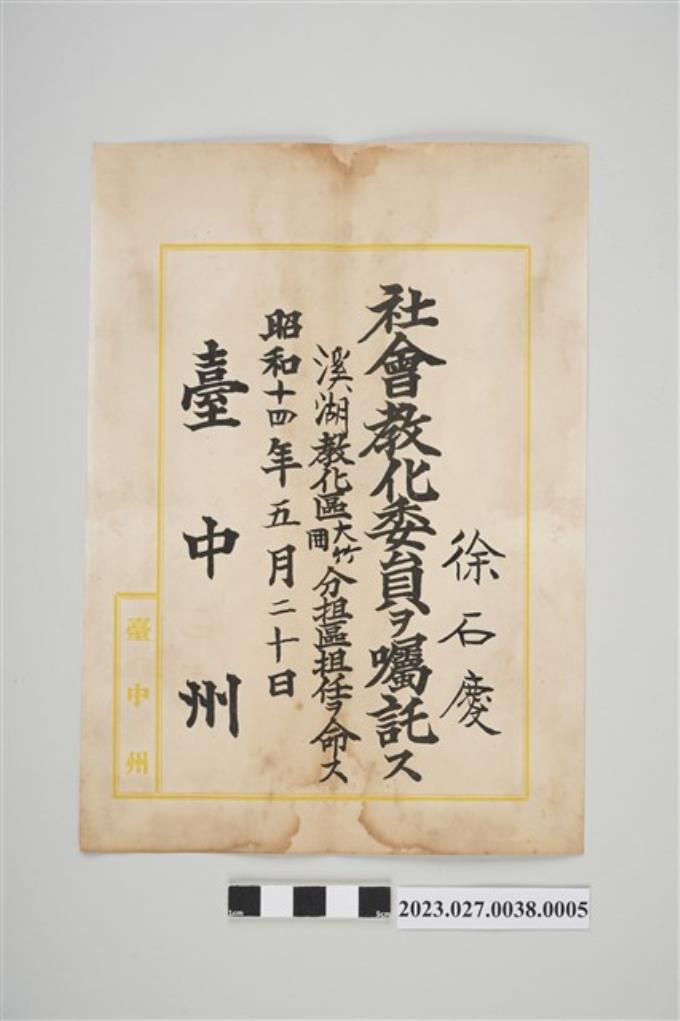 徐石慶
社會教化委員ヲ囑託ス
溪湖教化區大竹囲分担區担任ヲ命ス
昭和十四年五月二十日
臺中州
臺中州
1cm
5cm
2023.027.0038.0005